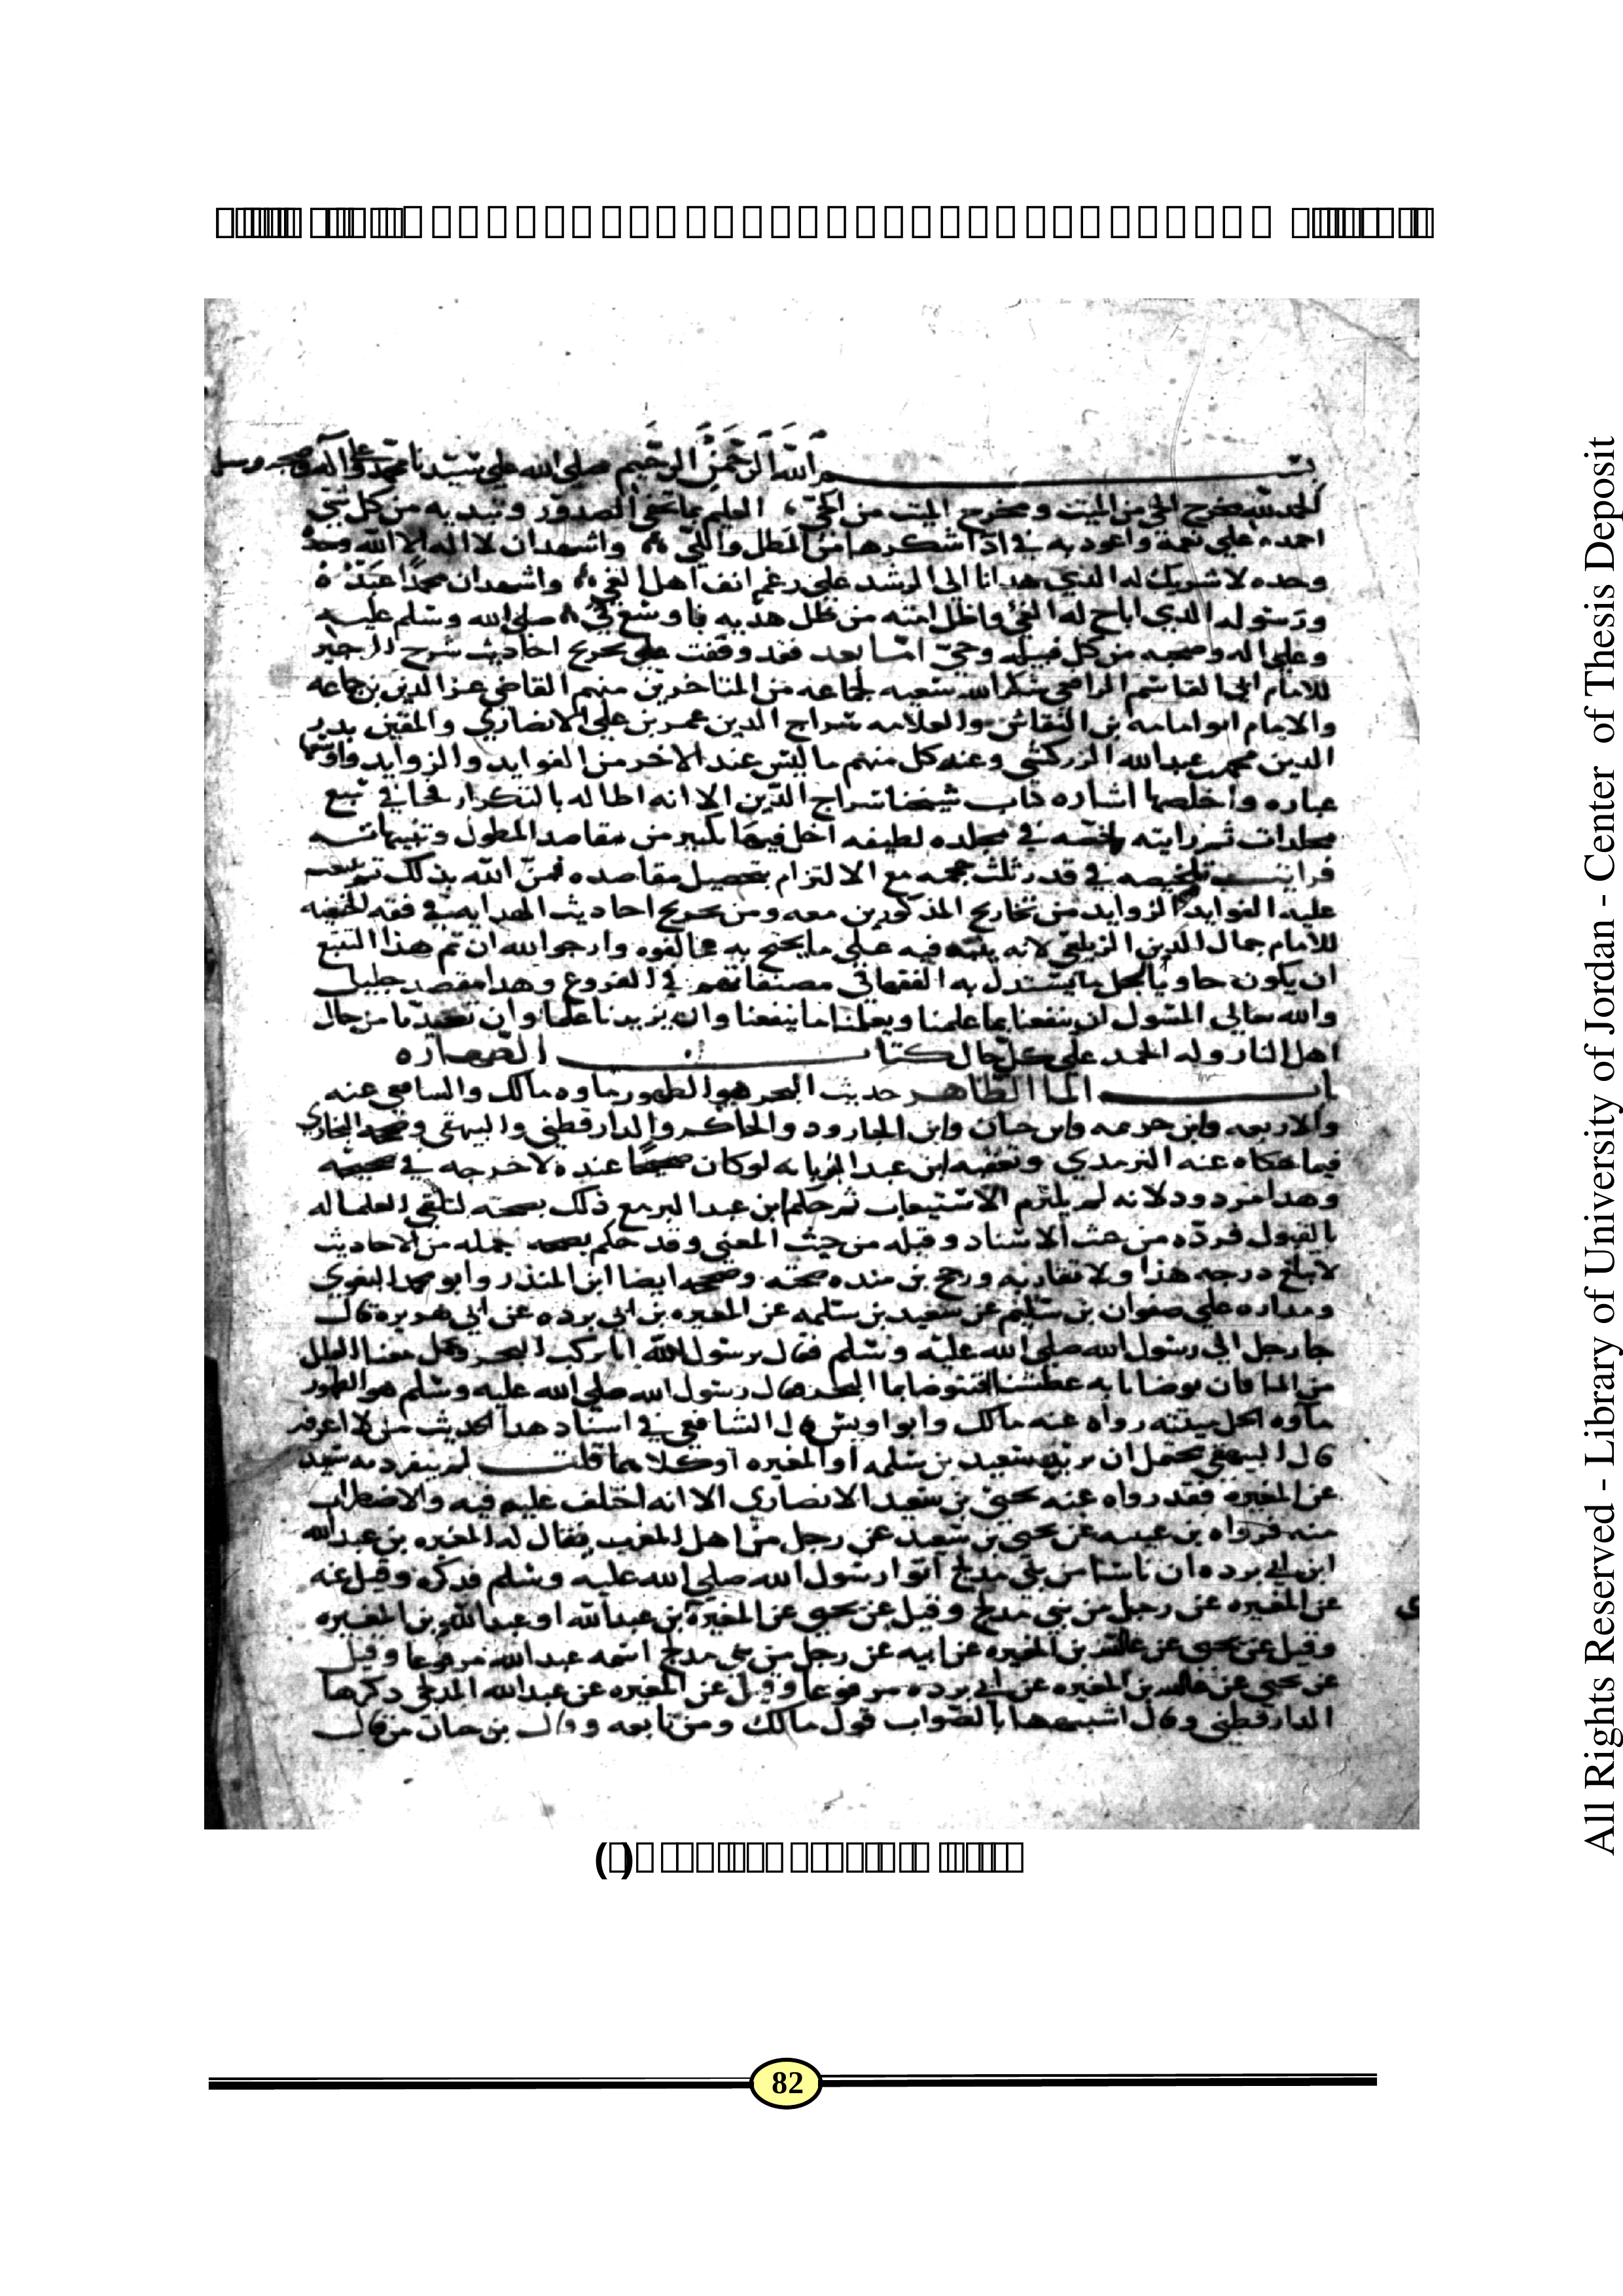 بسم الله الرحمن الرحيم صلى الله على سيدنا محمد وعلى آله وصحبه وسلم
الحمد لله مخرج الحي من الميت ومخرج الميت من الحي العليم بما تخفي الصدور وتبديه من كل شي
احمده على نعمه واعوذ به في اداشكرها من المطل واللي واشهد ان لا اله الا الله
وحده لا شريك له الذي هدانا الي الرشد علي رغم انف اهل الغي واشهد ان محمدا عبده
ورسوله الذي اباح له الفي واظل امته من ظل هديه باوسع في صلى الله وسلم عليه
وعلى اله وصحبه من كل قبيله وحي اما بعد فقد وقفت على تخريج احاديث شرح الوجيز
للامام ابي القاسم الرافعي شكر الله سعيه لجماعه من المتاخرين منهم القاضي عز الدين بن جماعه
والامام ابو امامه بن النقاش والعلامه سراج الدين عمر بن علي الانصاري والمفتي بدر
الدين محمد بن عبدالله الزركشي وعند كل منهم ما ليس عند الاخر من الفوايد والزوايد واوسعها
عباره واخلصها اشاره كتاب شيخنا سراج الدين الا انه اطاله بالتكرار فجا في سبع
مجلدات ثم رايته لخصه في مجلده لطيفه اخل فيها بكثير من مقاصد المطول وتنبيهاته
فرايت تلخيصه في قدر ثلث حجمه مع الالتزام بتحصيل مقاصده فمن الله بذلك ثم تتبعت
عليه الفوايد الزوايد من تخاريج المذكورين معه ومن تخريج احاديث الهدايه في فقه الحنفيه
للامام جمال الدين الزيلعي لانه ينبه فيه علي ما يحتج به مخالفوه وارجو الله ان تم هذا التتبع
ان يكون حاويا لجل ما يستدل به الفقها في مصنفاتهم في الفروع وهذا مقصد جليل
والله تعالي المسول ان ينفعنا بما علمنا ويعلمنا ما ينفعنا وان يزيدنا علما وان يعيذنا من حال
اهل النار وله الحمد علي كل حال كتاب الطهاره
باب الما الطاهر حديث البحر هو الطهور ماوه مالك والشافعي عنه
والاربعه وابن خزيمه وابن حبان وابن الجارود والحاكم والدارقطني والبيهقي وصححه البخاري
فيما حكاه عنه الترمذي وتعقبه ابن عبد البر بانه لو كان صحيحا عنده لاخرجه في صحيحه
وهذا مردود لانه لم يلتزم الاستيعاب ثم حكم ابن عبد البر مع ذلك بصحته لتلقي العلما له
بالقبول فرده من حيث الاسناد وقبله من حيث المعني وقد حكم بصحه جمله من الاحاديث
لا تبلغ درجه هذا ولا تقاربه ورجح بن منده صحته وصححه ايضا ابن المنذر وابو محمد البغوي
ومداره علي صفوان بن سليم عن سعيد بن سلمه عن المغيره بن ابي برده عن ابي هريرة قال
جا رجل الي رسول الله صلى الله عليه وسلم فقال يرسول الله انا نركب البحر ونحمل معنا القليل
من الما فان توضانا به عطشنا افنتوضا بما البحر قال رسول الله صلى الله عليه وسلم هو الطهور
ماوه الحل ميتته رواه عنه مالك وابو اويس قال الشافعي في اسناد هذا الحديث من لا اعرفه
قال البيهقي يحتمل ان يريد سعيد بن سلمه او المغيره او كلاهما قلت لم ينفرد به سعيد
عن المغيره فقد رواه عنه يحيي بن سعيد الانصاري الا انه اختلف عليه فيه والاضطراب
منه فرواه بن عيينه عن يحيي بن سعيد عن رجل من اهل المغرب يقال له المغيره بن عبدالله
ابن ابي برده ان ناسا من بني مدلج اتوا رسول الله صلي الله عليه وسلم فذكره وقيل عنه
عن المغيره عن رجل من بني مدلج وقيل عن يحيي عن المغيرة بن عبدالله او عبدالله بن المغيره
وقيل عن يحيي عن عبدالله بن المغيره عن ابيه عن رجل من بني مدلج اسمه عبدالله مرفوعا وقيل
عن يحيي عن عبدالله بن المغيره عن ابي برده مرفوعا وقيل عن المغيره عن عبدالله المدلجي ذكرها
الدارقطني وقال اشبهها بالصواب قول مالك ومن تابعه وقال بن حبان من قال
82
All Rights Reserved - Library of University of Jordan - Center of Thesis Deposit